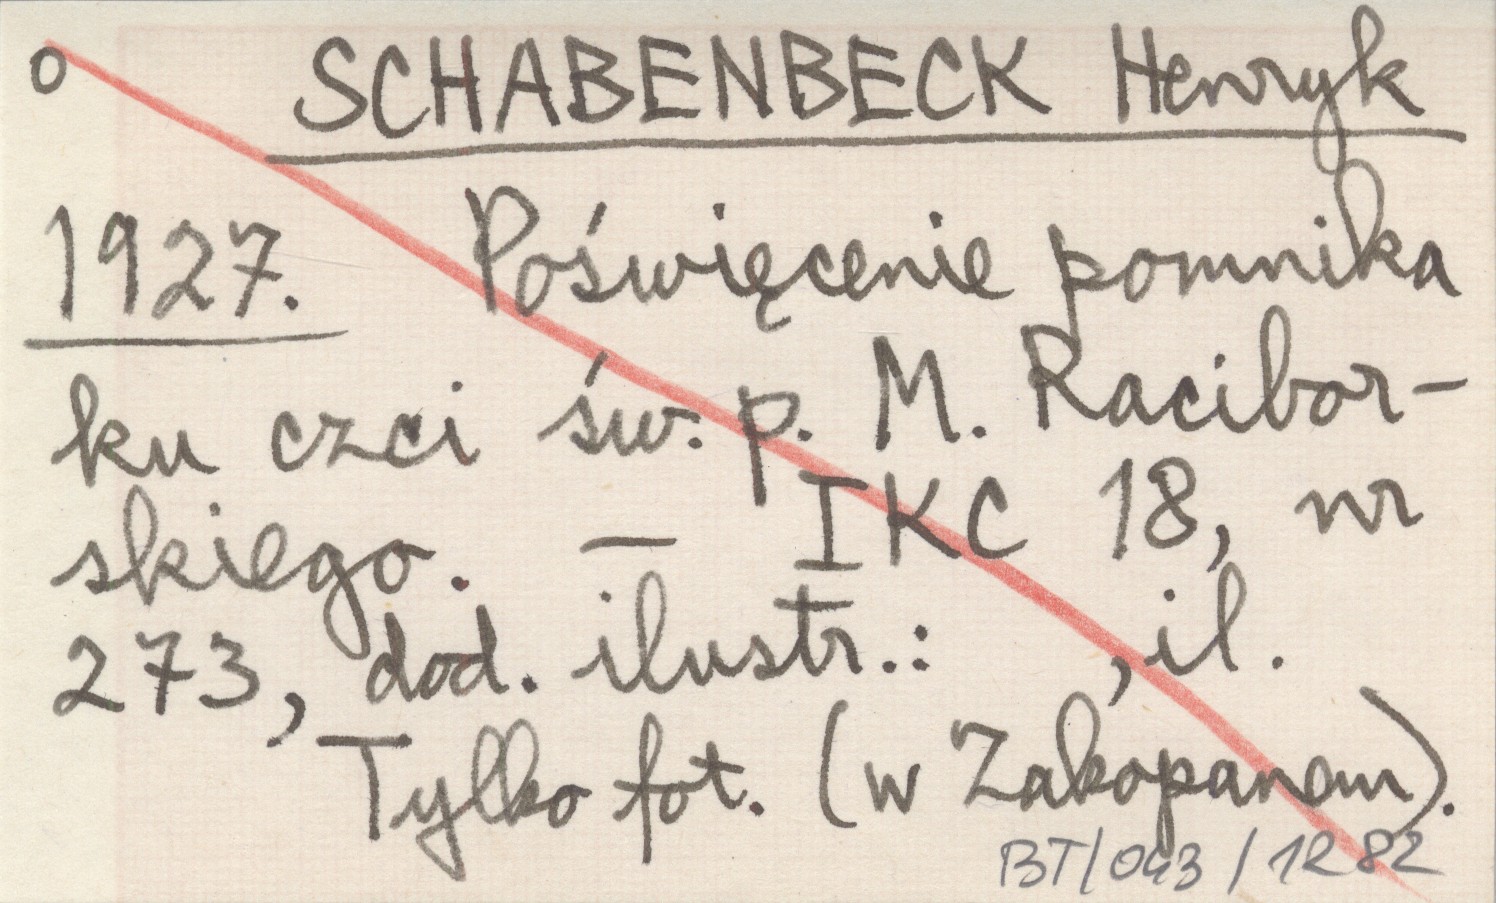 o SCHABENBECK Henryk
1927. Poświęcenie pomnika
ku czci św. p. M. Racibor-
skiego. — IKC 18, nr
273, dod. ilustr.: , il.
Tylko fot. (w Zakopanem).
BT/043/1282